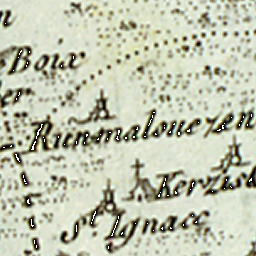 Boix
er
Runmalouezen
Kerzis
St Ignace